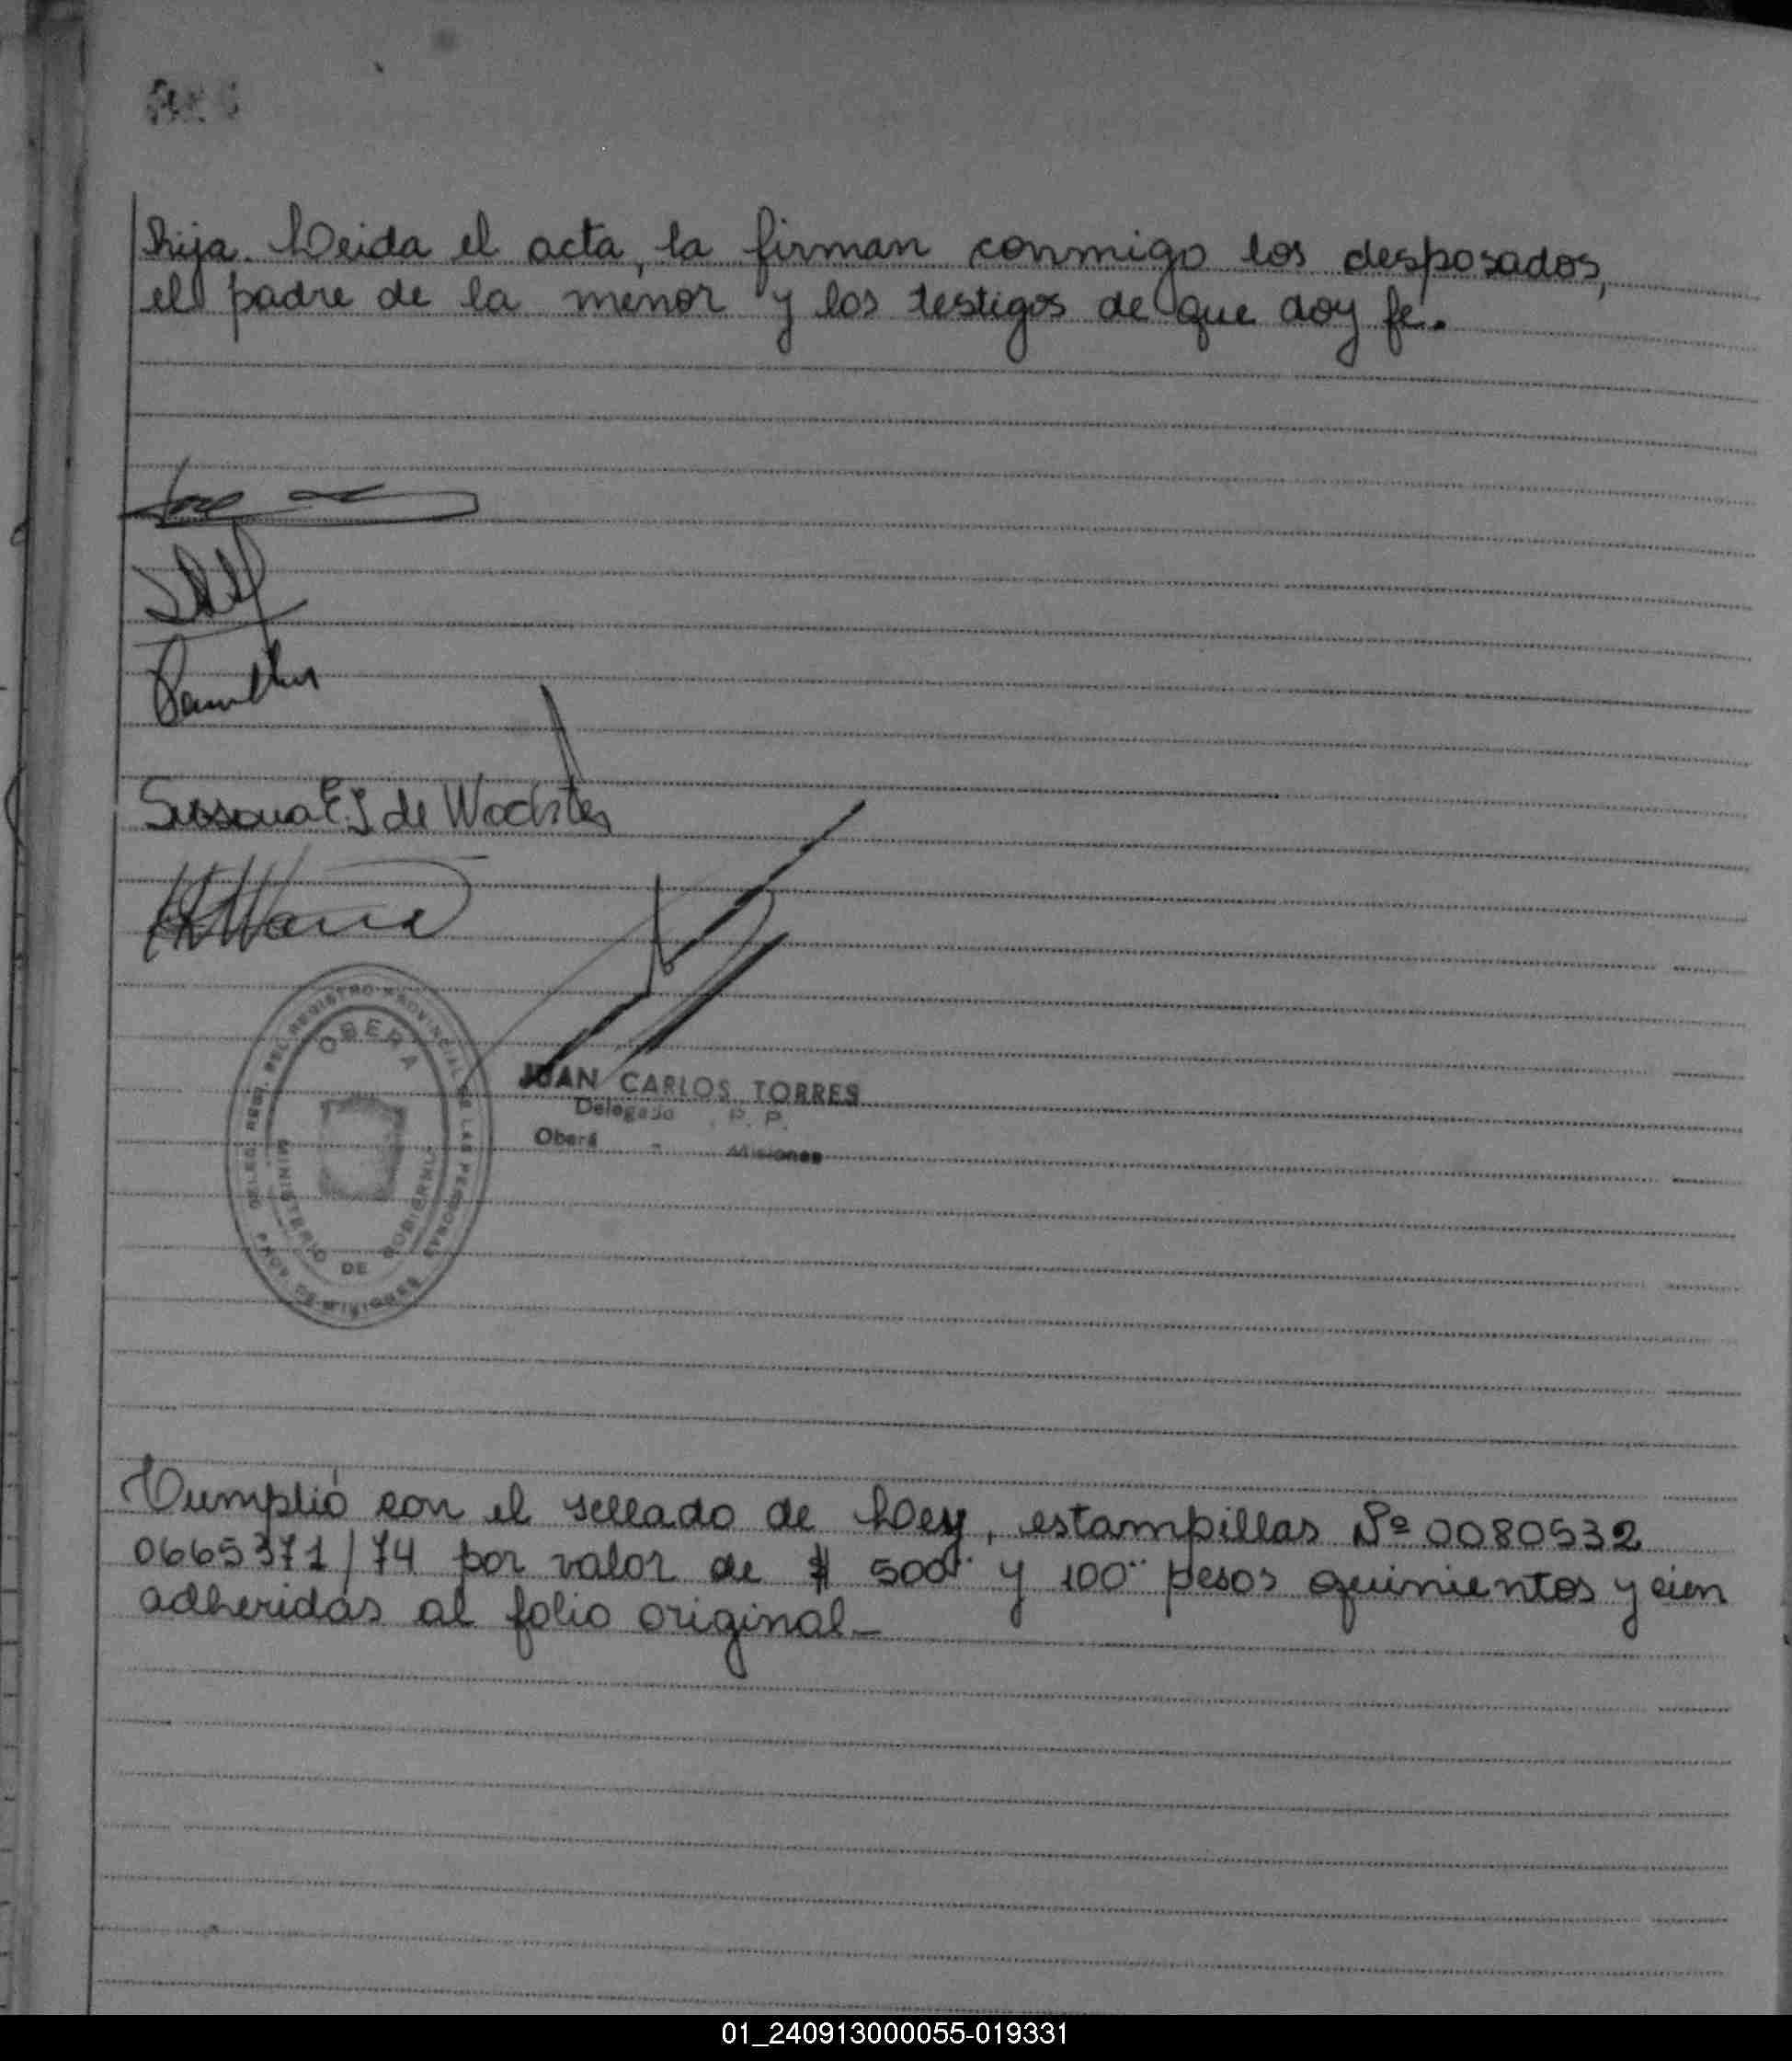 hija. Leida el acta, la firman conmigo los desposados,
el padre de la menor y los testigos de que doy fe.
Sussana E. J. de Wachter
OBERA
DELEG. REGL. DEL REGISTRO PROVINCIAL DE LAS PERSONAS
MINISTERIO DE GOBIERNO
PROV. DE MISIONES
JUAN CARLOS TORRES
Delegado P. P.
Oberá - Misiones
Cumplió con el sellado de Ley, estampillas Nº 0080532
0665371/74 por valor de $ 500 y 100 pesos quinientos y cien
adheridas al folio original.-
01_240913000055-019331